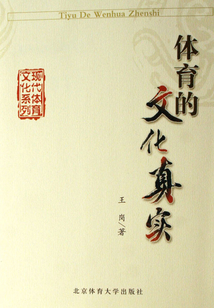 Tiyu De Wenhua Zhenshi
体育的
文化真实
现代体育
文化系列
王岗/著
北京体育大学出版社